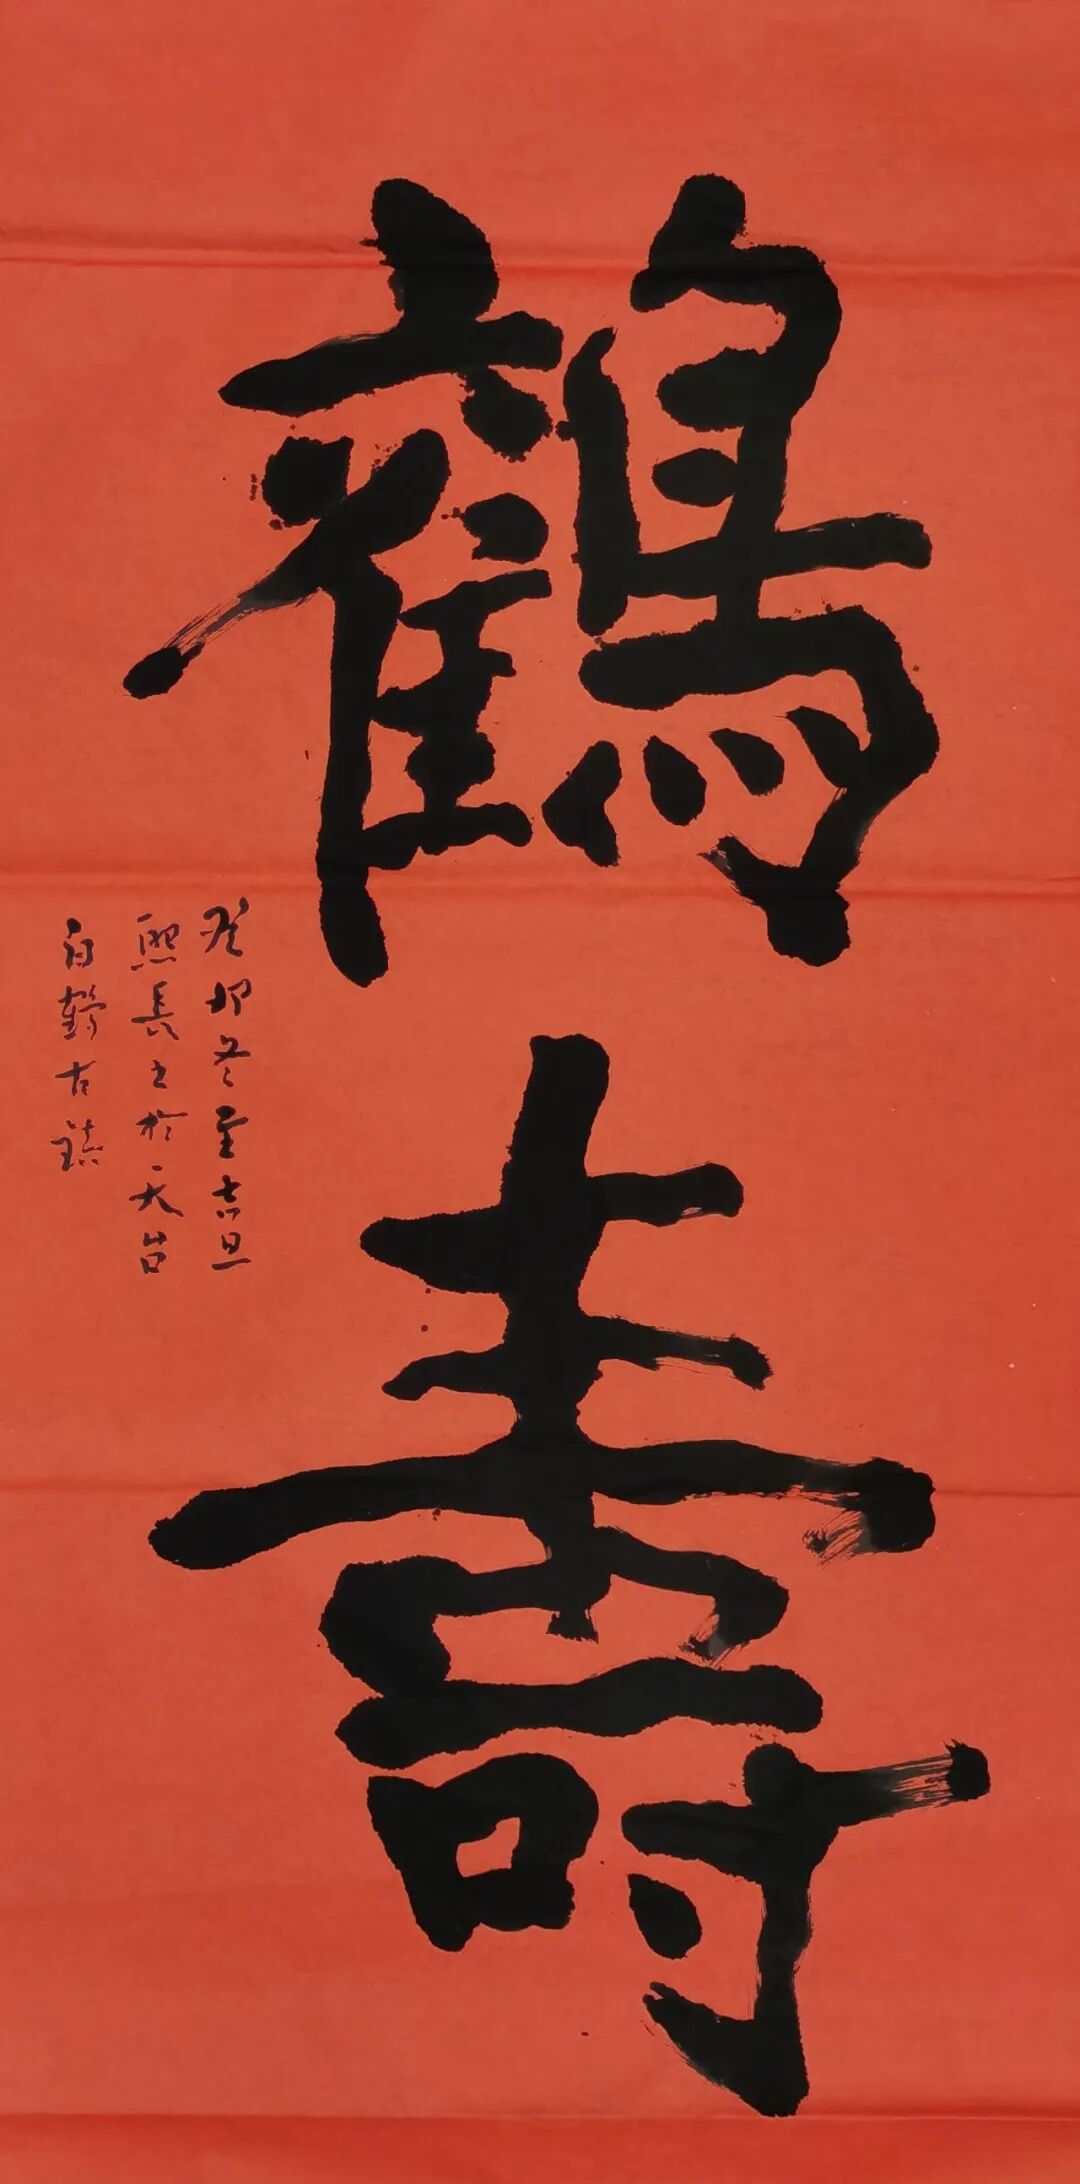 鶴壽
癸卯冬至吉旦
熙長書於天台
白鶴古鎮